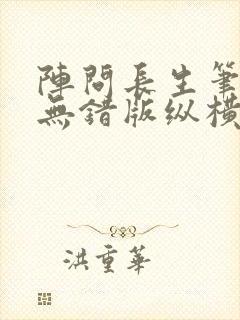 陣問長生筆
無錯版纵橫
洪重華